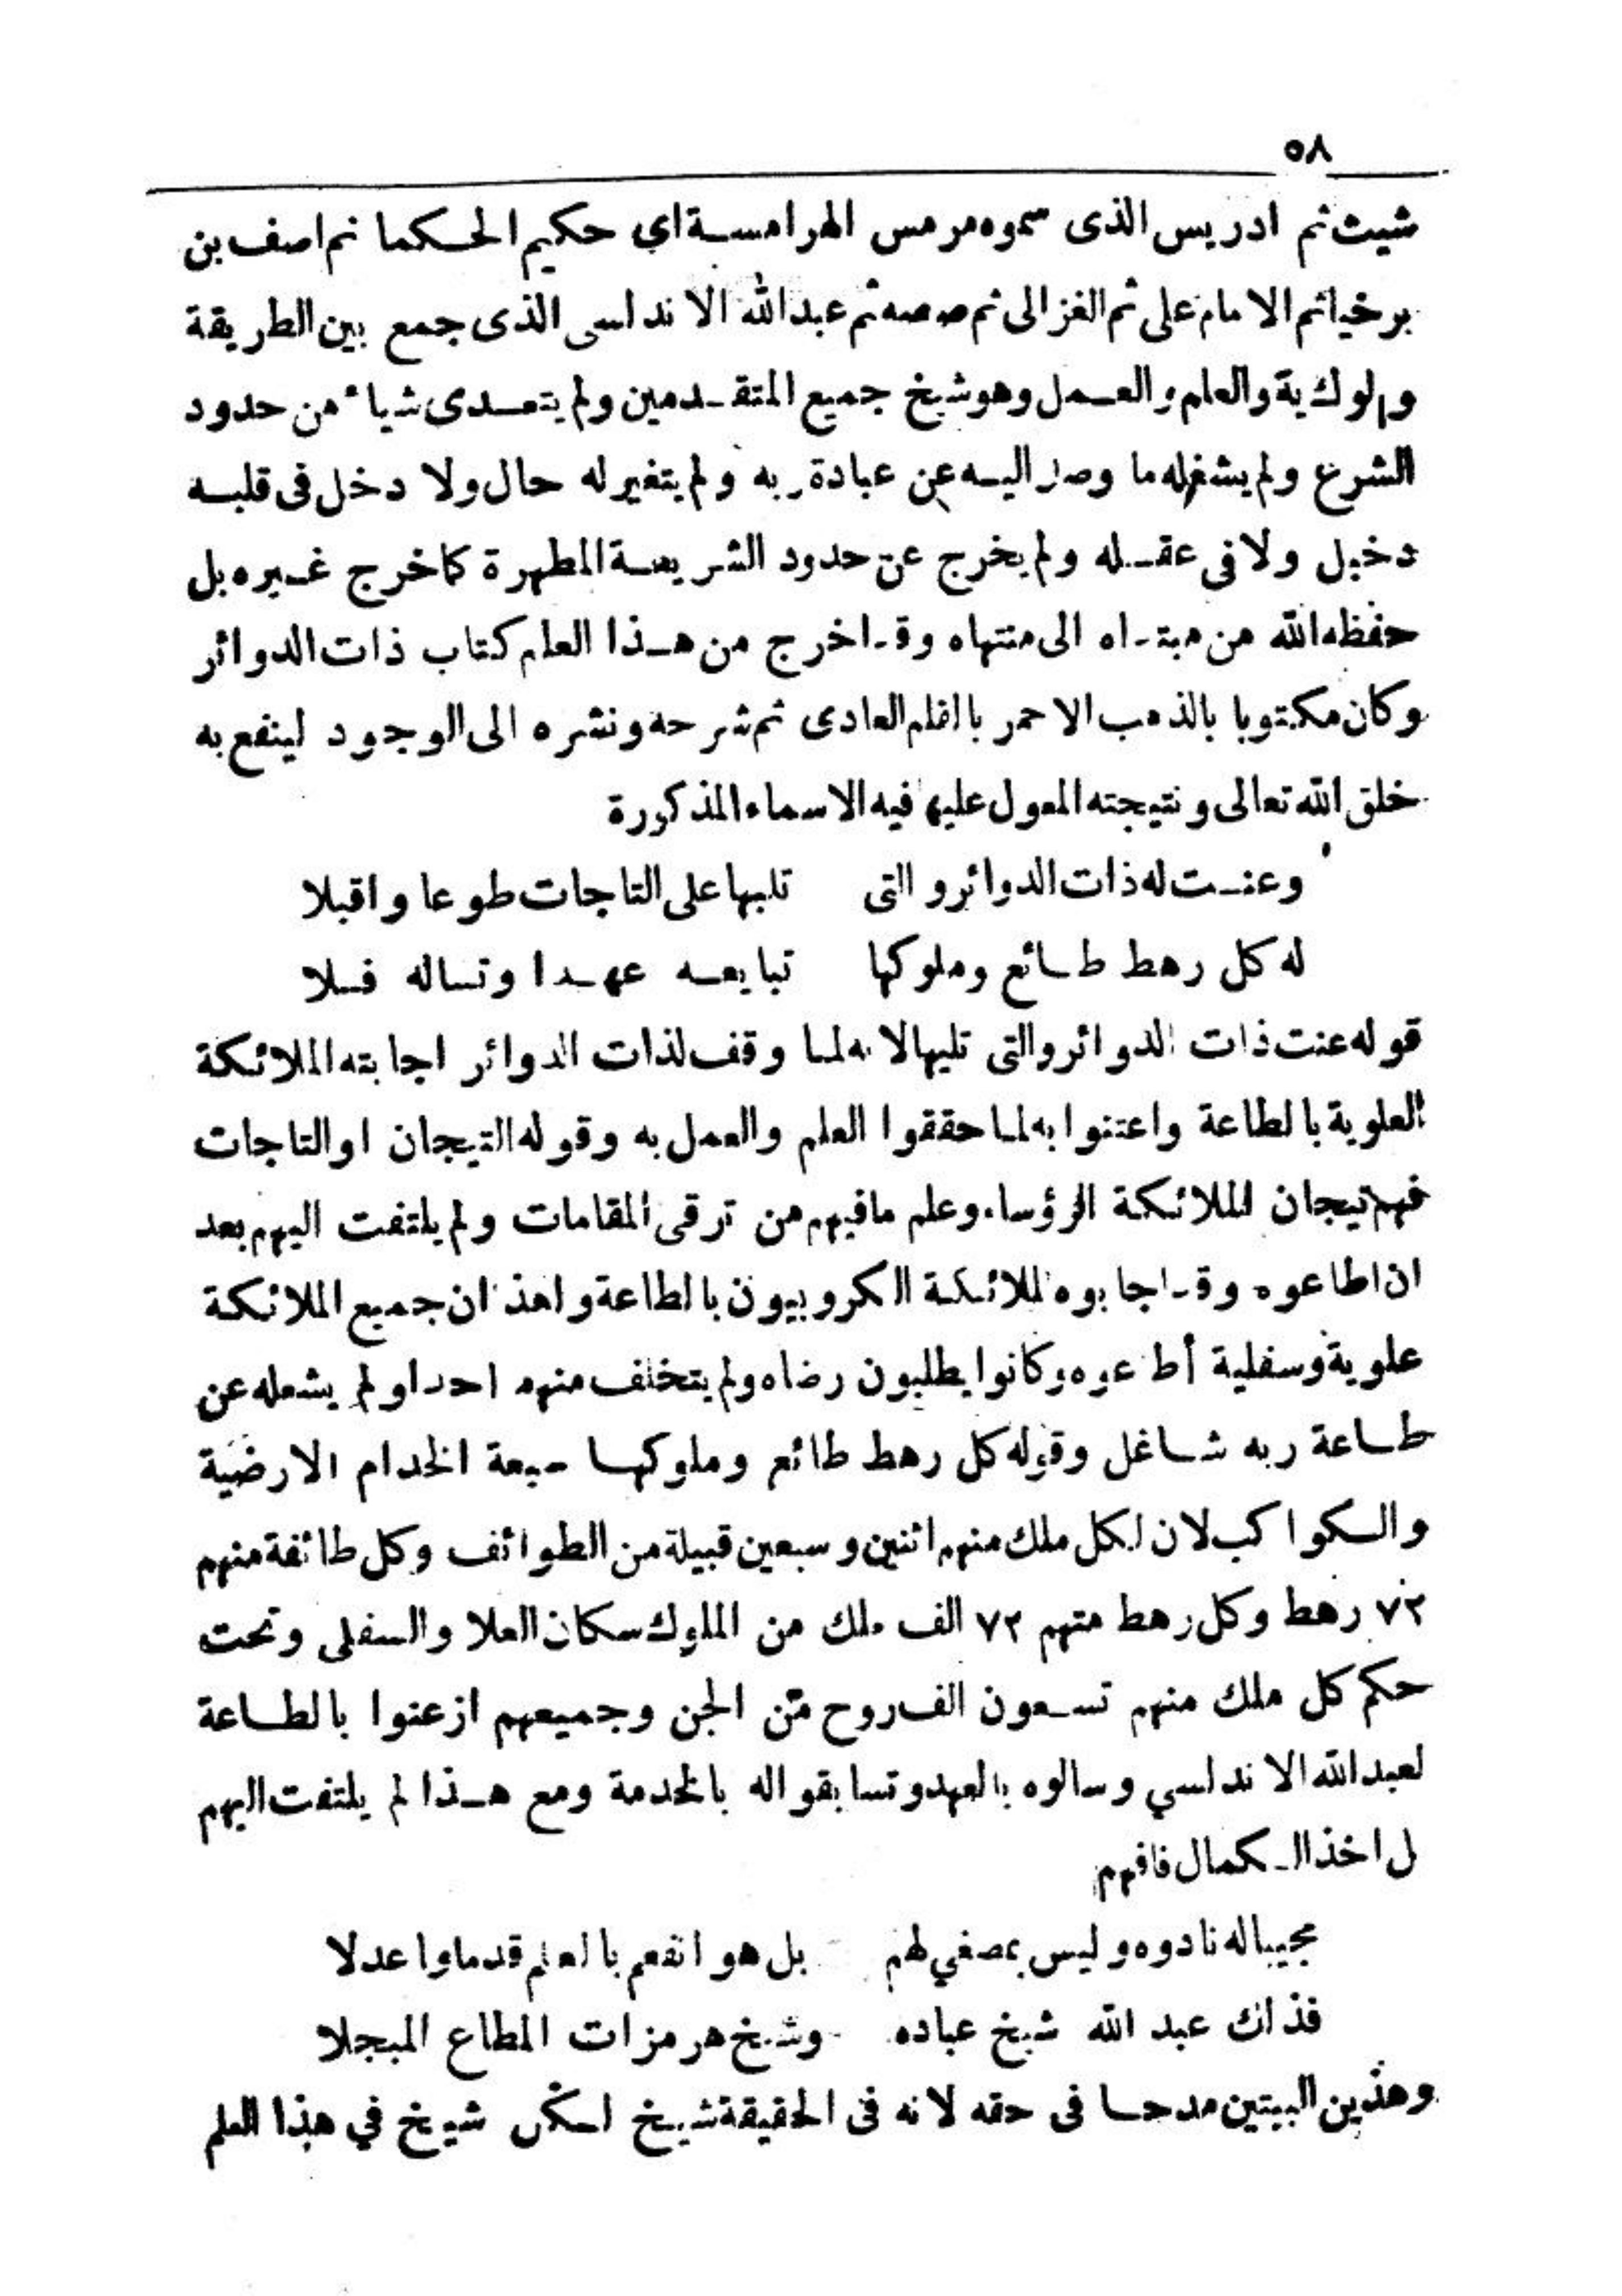 ٥٨
شيث ثم ادريس الذى سموه مرمس الهرامسة اي حكيم الحكما ثم اصف بن
برخيا ثم الامام على ثم الغزالى ثم صصه ثم عبد الله الاندلسى الذى جمع بين الطريقة
والعلم والعمل وهو شيخ جميع المتقدمين ولم يتعدى شياء من حدود
الشرع ولم يشغله ما وصل اليه عن عبادة ربه ولم يتغير له حال ولا دخل فى قلبه
دخيل ولا فى عقله ولم يخرج عن حدود الشريعة المطهرة كما خرج غيره بل
حفظه الله من مبتداه الى منتهاه وقد اخرج من هذا العلم كتاب ذات الدوائر
وكان مكتوبا بالذهب الاحمر بالقلم العادى ثم شرحه ونشره الى الوجود لينفع به
خلق الله تعالى ونتيجته المعول عليها فيه الاسماء المذكورة
وعنت له ذات الدوائر والتى تليها على التاجات طوعا واقبلا
له كل رهط طائع وملوكها تبايعه عهدا وتساله فلا
قوله عنت ذات الدوائر والتى تليها لانه لما وقف لذات الدوائر اجابته الملائكة
العلوية بالطاعة واعتنوا به لما حققوا العلم والعمل به وقوله التيجان او التاجات
فهم تيجان الملائكة الرؤساء وعلم ما فيهم من ترقى المقامات ولم يلتفت اليهم بعد
ان اطاعوه وقد اجابوه الملائكة الكروبيون بالطاعة ولهذا ان جميع الملائكة
علوية وسفلية أطاعوه وكانوا يطلبون رضاه ولم يتخلف منهم احدا ولم يشغله عن
طاعة ربه شاغل وقوله كل رهط طائع وملوكها سبعة الخدام الارضية
والكواكب لان لكل ملك منهم اثنين وسبعين قبيلة من الطوائف وكل طائفة منهم
٧٢ رهط وكل رهط منهم ٧٢ الف ملك من الملوك سكان العلا والسفلى وتحت
حكم كل ملك منهم تسعون الف روح من الجن وجميعهم ازعنوا بالطاعة
لعبد الله الاندلسي وسالوه بالعهد وتسابقوا له بالخدمة ومع هذا لم يلتفت اليهم
ل اخذ الكمال فافهم
مجيبا له نادوه وليس بمصغي لهم بل هو انفعم بالعلم قدما واعدلا
فذاك عبد الله شيخ عباده وشيخ هرمزات المطاع المبجلا
وهذين البيتين مدحا فى حقه لانه فى الحقيقة شيخ لكل شيخ في هذا العلم